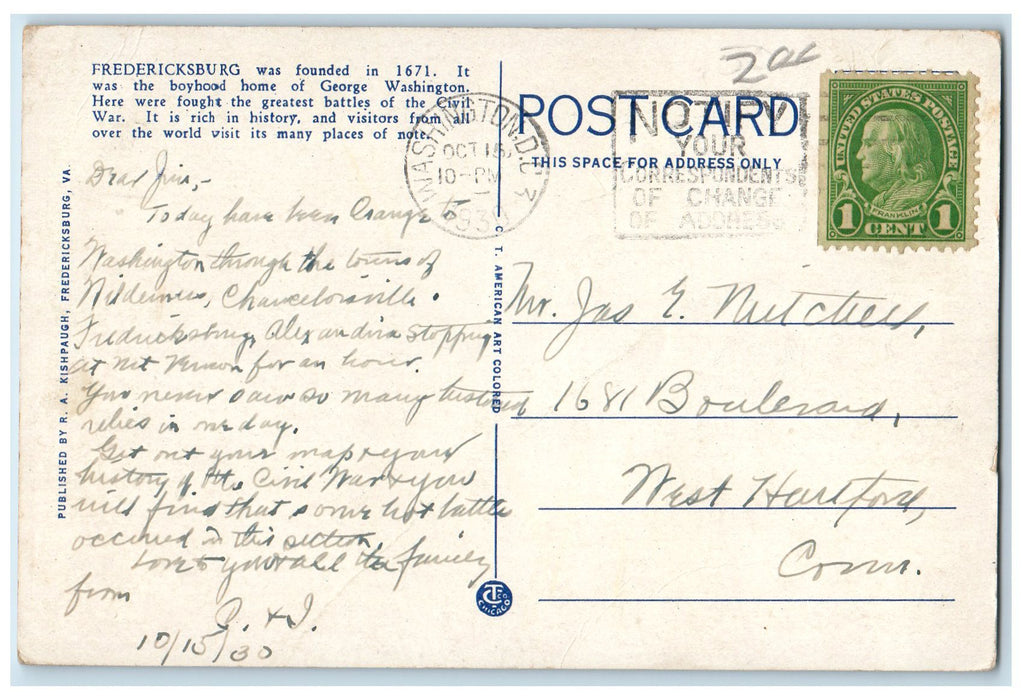 FREDERICKSBURG was founded in 1671. It
was the boyhood home of George Washington.
Here were fought the greatest battles of the Civil
War. It is rich in history, and visitors from all
over the world visit its many places of note.
PUBLISHED BY R. A. KISHPAUGH, FREDERICKSBURG, VA.
Dear Jim,-
Today have been to
Washington through the towns of
Wilderness, Chancelorsville.
Fredricksburg, Alexandira stopping
at Mt Vernon for an hour.
You never saw so many historical
relics in one day.
Get out your map & your
history of the Civil War & you
will find that some hot battles
occured in this section.
Love to you & all the family
from
10/15/30
C. T. AMERICAN ART COLORED
CT CO CHICAGO
WASHINGTON, D.C. 3
OCT 15
10-PM
1930
20c
POST CARD
THIS SPACE FOR ADDRESS ONLY
NOTIFY
YOUR
CORRESPONDENTS
OF CHANGE
OF ADDRESS
UNITED STATES POSTAGE
FRANKLIN
1 CENT 1
Mr. Jas E. Mitchell,
1681 Boulevard,
West Hartford,
Conn.